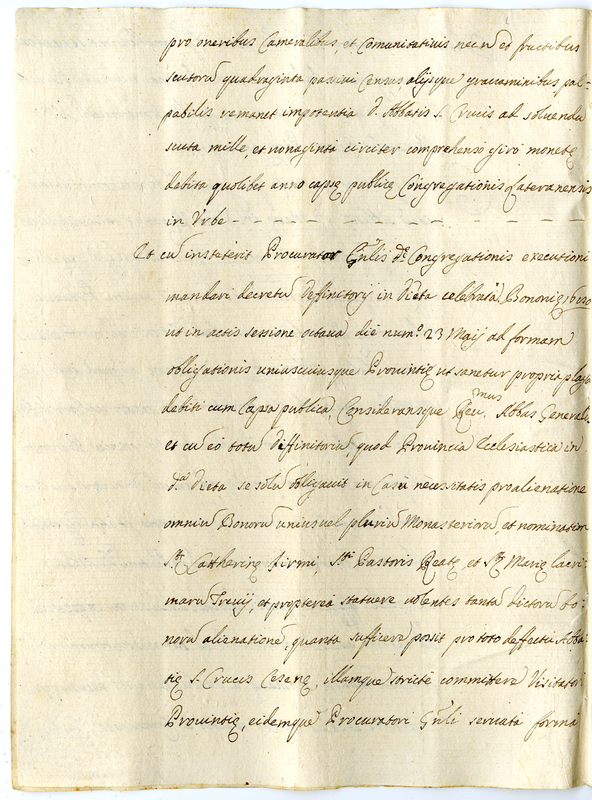 pro oneribus Cameralibus, et Comunitativis necn̄ et fructibus
scutorū quadraginta passivi Census, alijsque gravaminibus, pal-
pabilis remanet impotentia D. Abbatis S. Crucis ad solvendū
scuta mille, et nonaginta circiter comprehenso giro monetę
debita quolibet anno capsę publicę Congregationis Lateranensis
in Urbe - - - - - - - - - -
Et cū institerit Procurator Gn̄lis d.ę Congregationis executioni
mandari decretū Deffinitorij in Dieta celebrata Bononię 1650
ut in actis sessione octava die num.º 23 Maij ad formam
obligationis uniuscuiusque Provintię ut sanetur propria plaga
debiti cum Capsa publica, Consideransque Reu.mus Abbas Generalis
et cū eo totū Diffinitoriū, quod Provincia Ecclesiastica in
d.ª Dieta se solū obligavit in casū necessitatis pro alienatione
omniū Bonorū unius vel pluriū Monasteriorū, et nominatim
S.ę Catherinę Firmi, S.ti Pastoris Reatę, et S.ę Marię lacri-
marū Trevij, et propterea statuere volentes tantā dictorū bo-
norū alienationē, quanta sufficere possit pro toto deffectu Abba-
tię S. Crucis Cesenę, illamque strictè committere Visitatori
Provintię, eidemque Procuratori Gn̄li servata forma